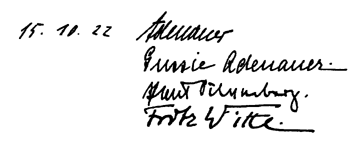 15. 10. 22 Adenauer
Gussie Adenauer.
Fritz Witte.